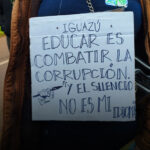 · IGUAZÚ ·
EDUCAR ES
COMBATIR LA
CORRUPCIÓN.
Y EL SILENCIO
NO ES MI
IDIOMA